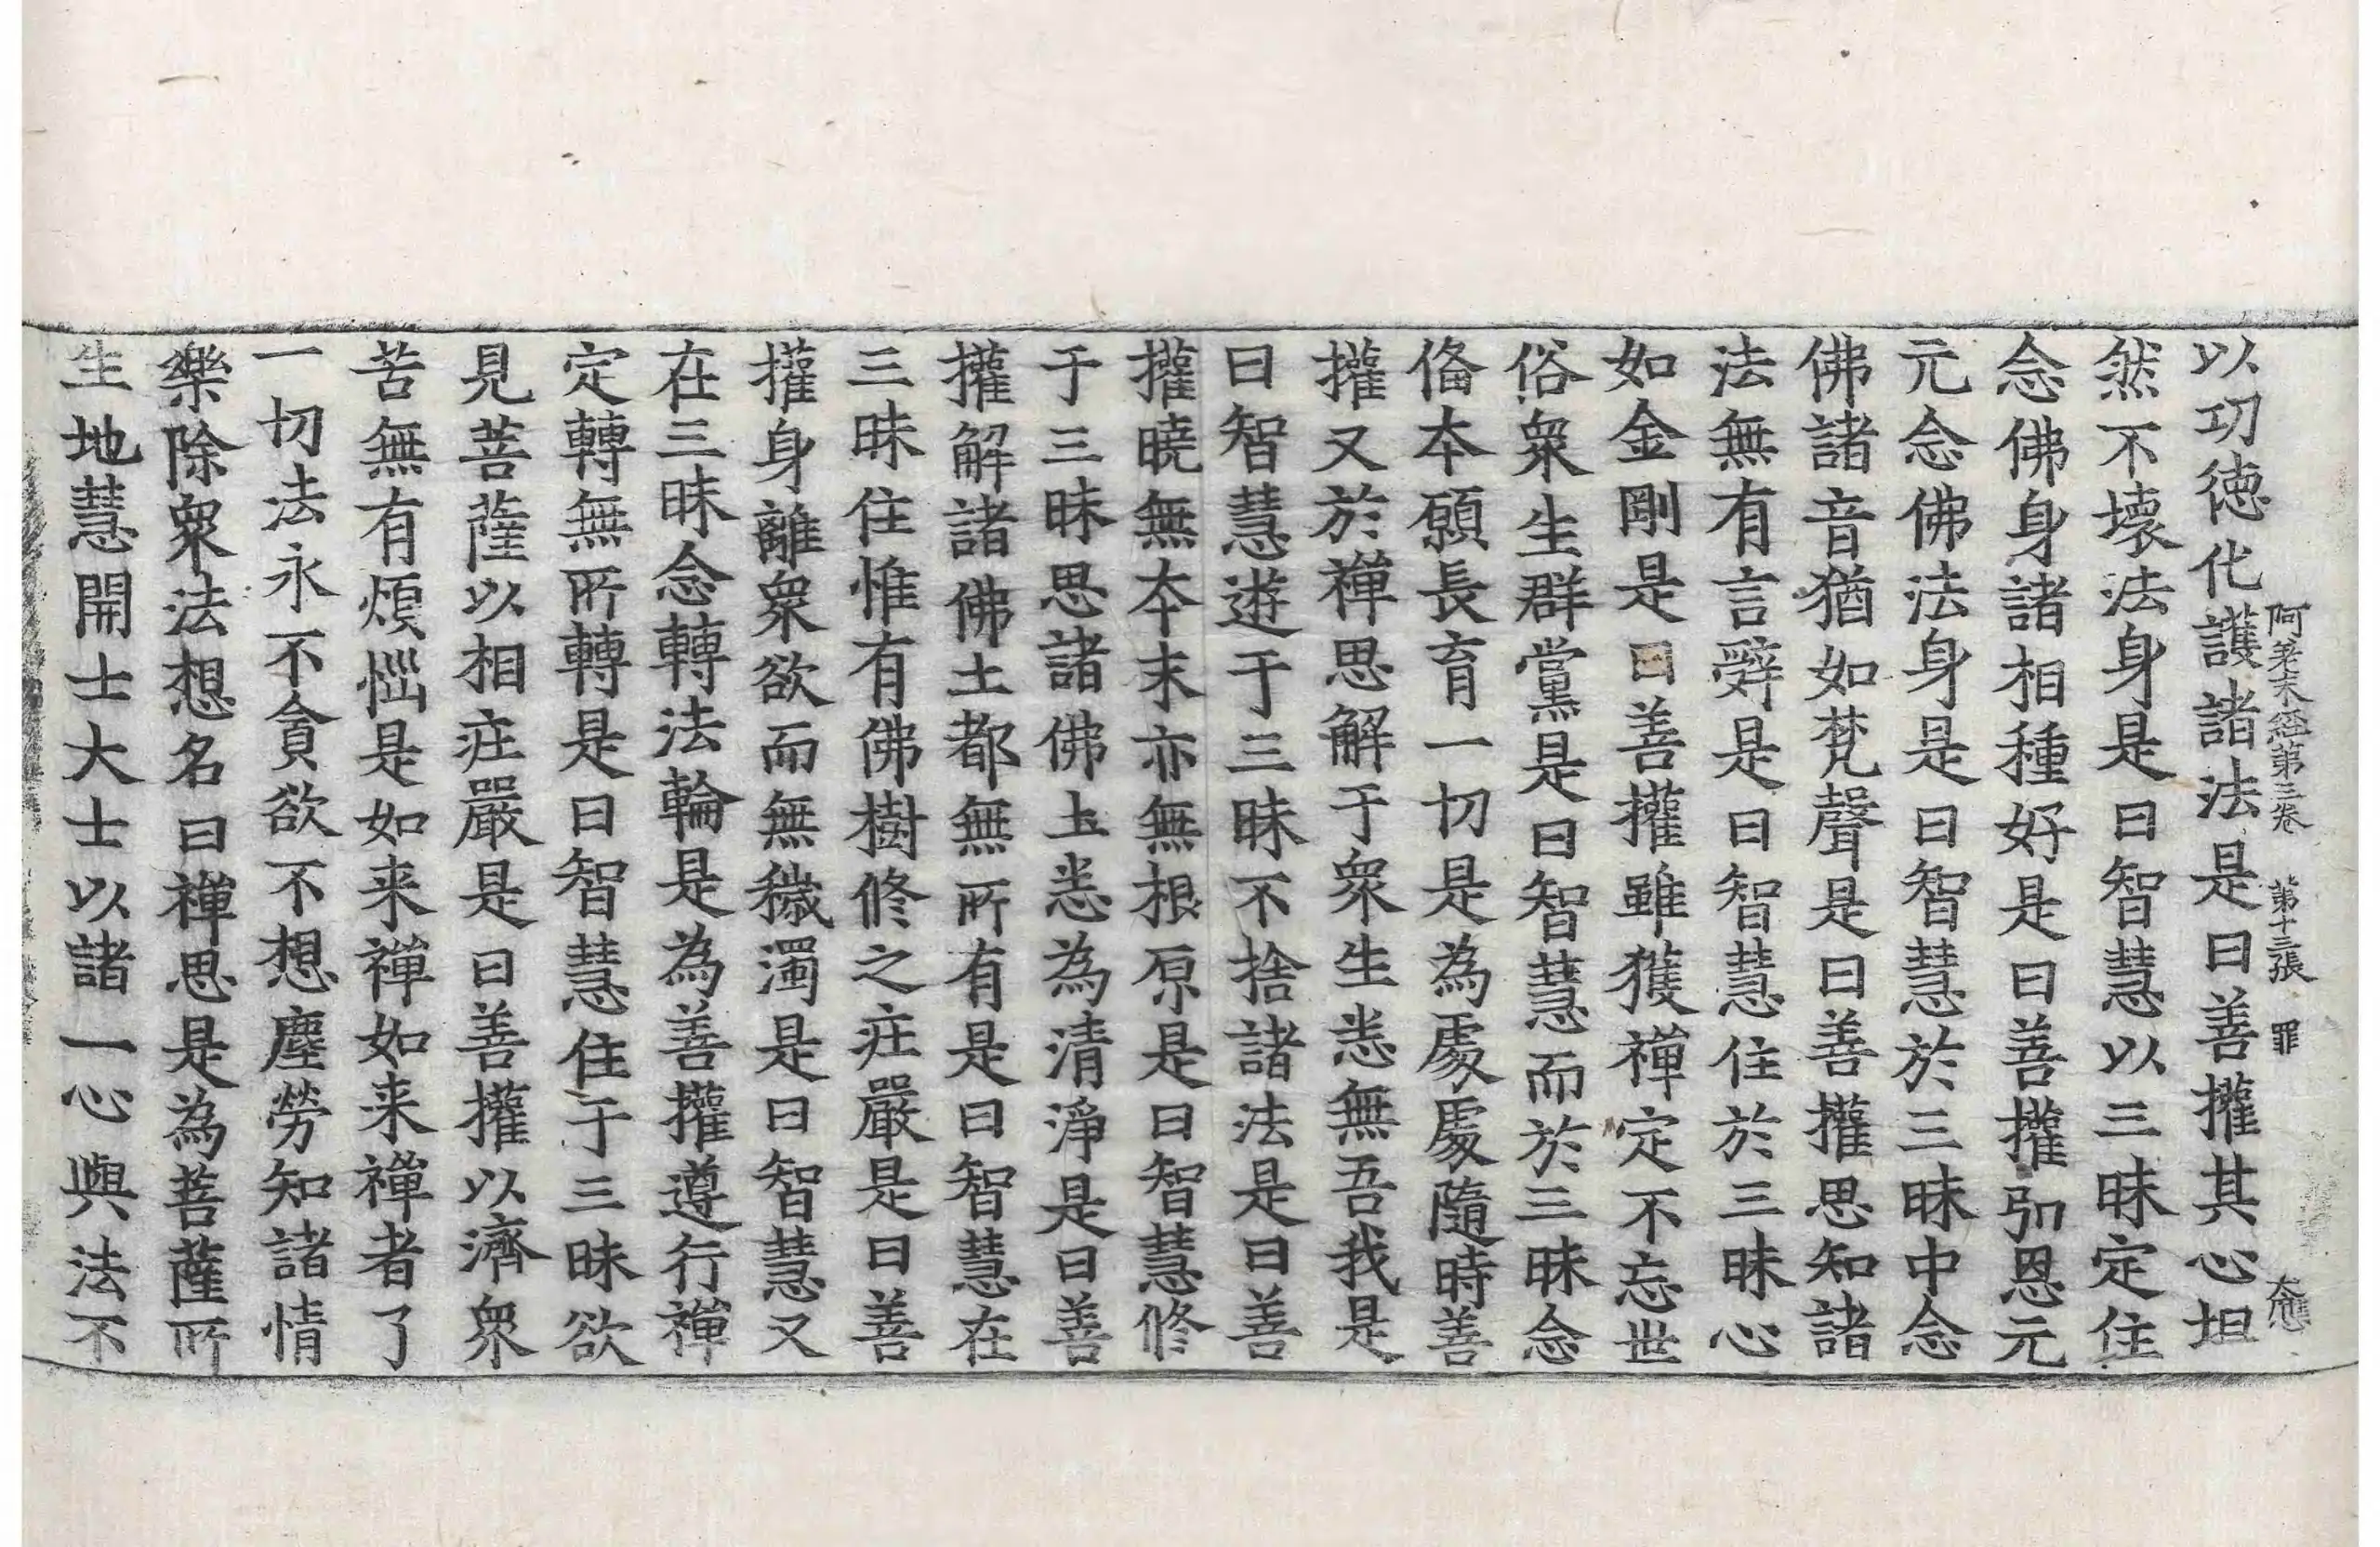 以功德化護諸法是曰善攉其心坦
阿差末經第三卷 第十三張 罪
然不壞法身是曰智慧以三昧定住
念佛身諸相種好是曰善攉弘恩元
元念佛法身是曰智慧於三昧中念
佛諸音猶如梵聲是曰善攉思知諸
法無有言辤是曰智慧住於三昧心
如金剛是曰善攉雖獲禪定不忘世
俗衆生群黨是曰智慧而於三昧念
俻本願長育一切是為處處隨時善
攉又於禪思解于衆生悉無吾我是
曰智慧遊于三昧不捨諸法是曰善
攉曉無本末亦無根原是曰智慧修
于三昧思諸佛土悉為清淨是曰善
攉解諸佛土都無所有是曰智慧在
三昧住惟有佛樹修之庄嚴是曰善
攉身離衆欲而無穢濁是曰智慧又
在三昧念轉法輪是為善攉遵行禪
定轉無所轉是曰智慧住于三昧欲
見菩薩以相庄嚴是曰善攉以濟衆
苦無有煩惱是如来禪如来禪者了
一切法永不貪欲不想塵勞知諸情
樂除衆法想名曰禪思是為菩薩所
生地慧開士大士以諸一心與法不